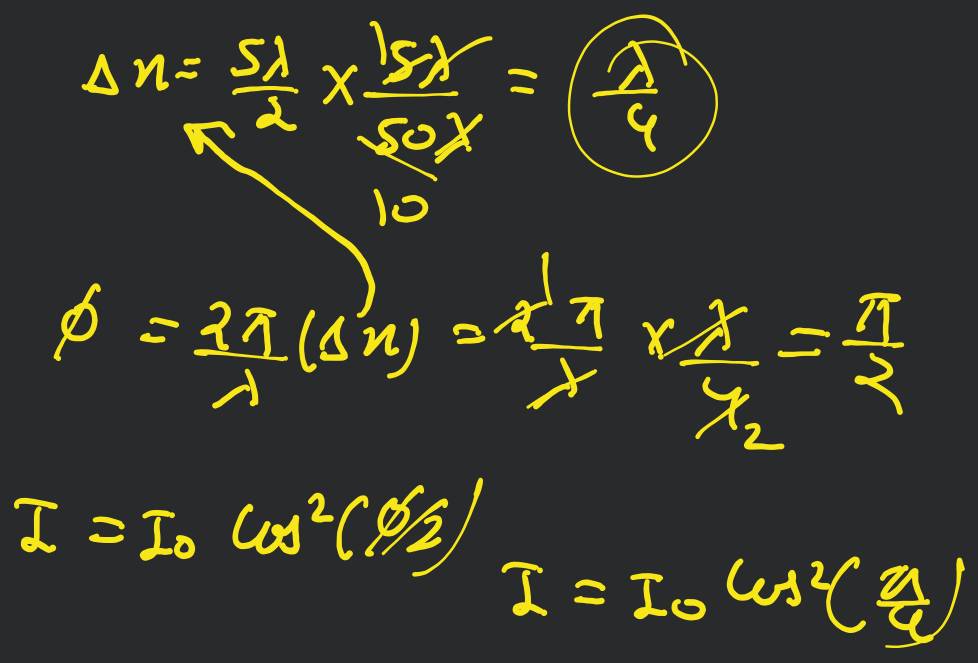 Δx = 5λ/2 × 5λ/50λ 10 = λ/4
φ = 2π/λ (Δx) = 2π/λ × λ/4 2 = π/2
I = I₀ cos²(φ/2)
I = I₀ cos²(π/4)